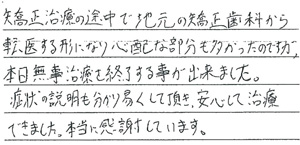 矯正治療の途中で地元の矯正歯科から
転医する形になり心配な部分も多かったのですが、
本日無事治療を終了する事が出来ました。
症状の説明も分かり易くして頂き、安心して治療
できました。本当に感謝しています。